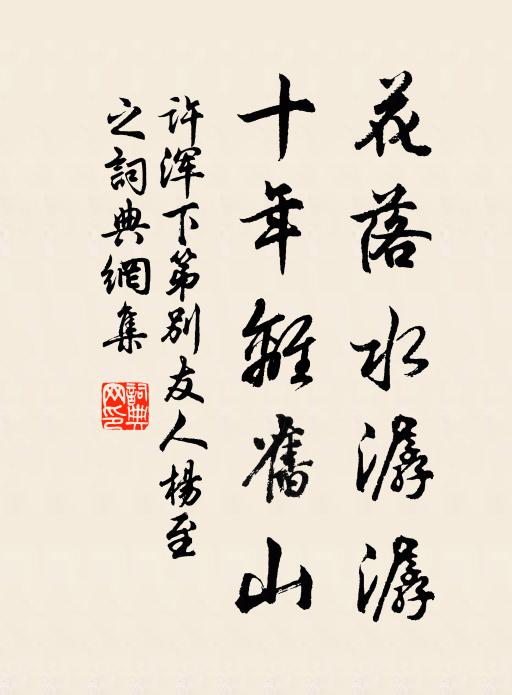 花落水潺潺
十年離舊山
许渾下第別友人楊至
之詞典網集
詞典網印